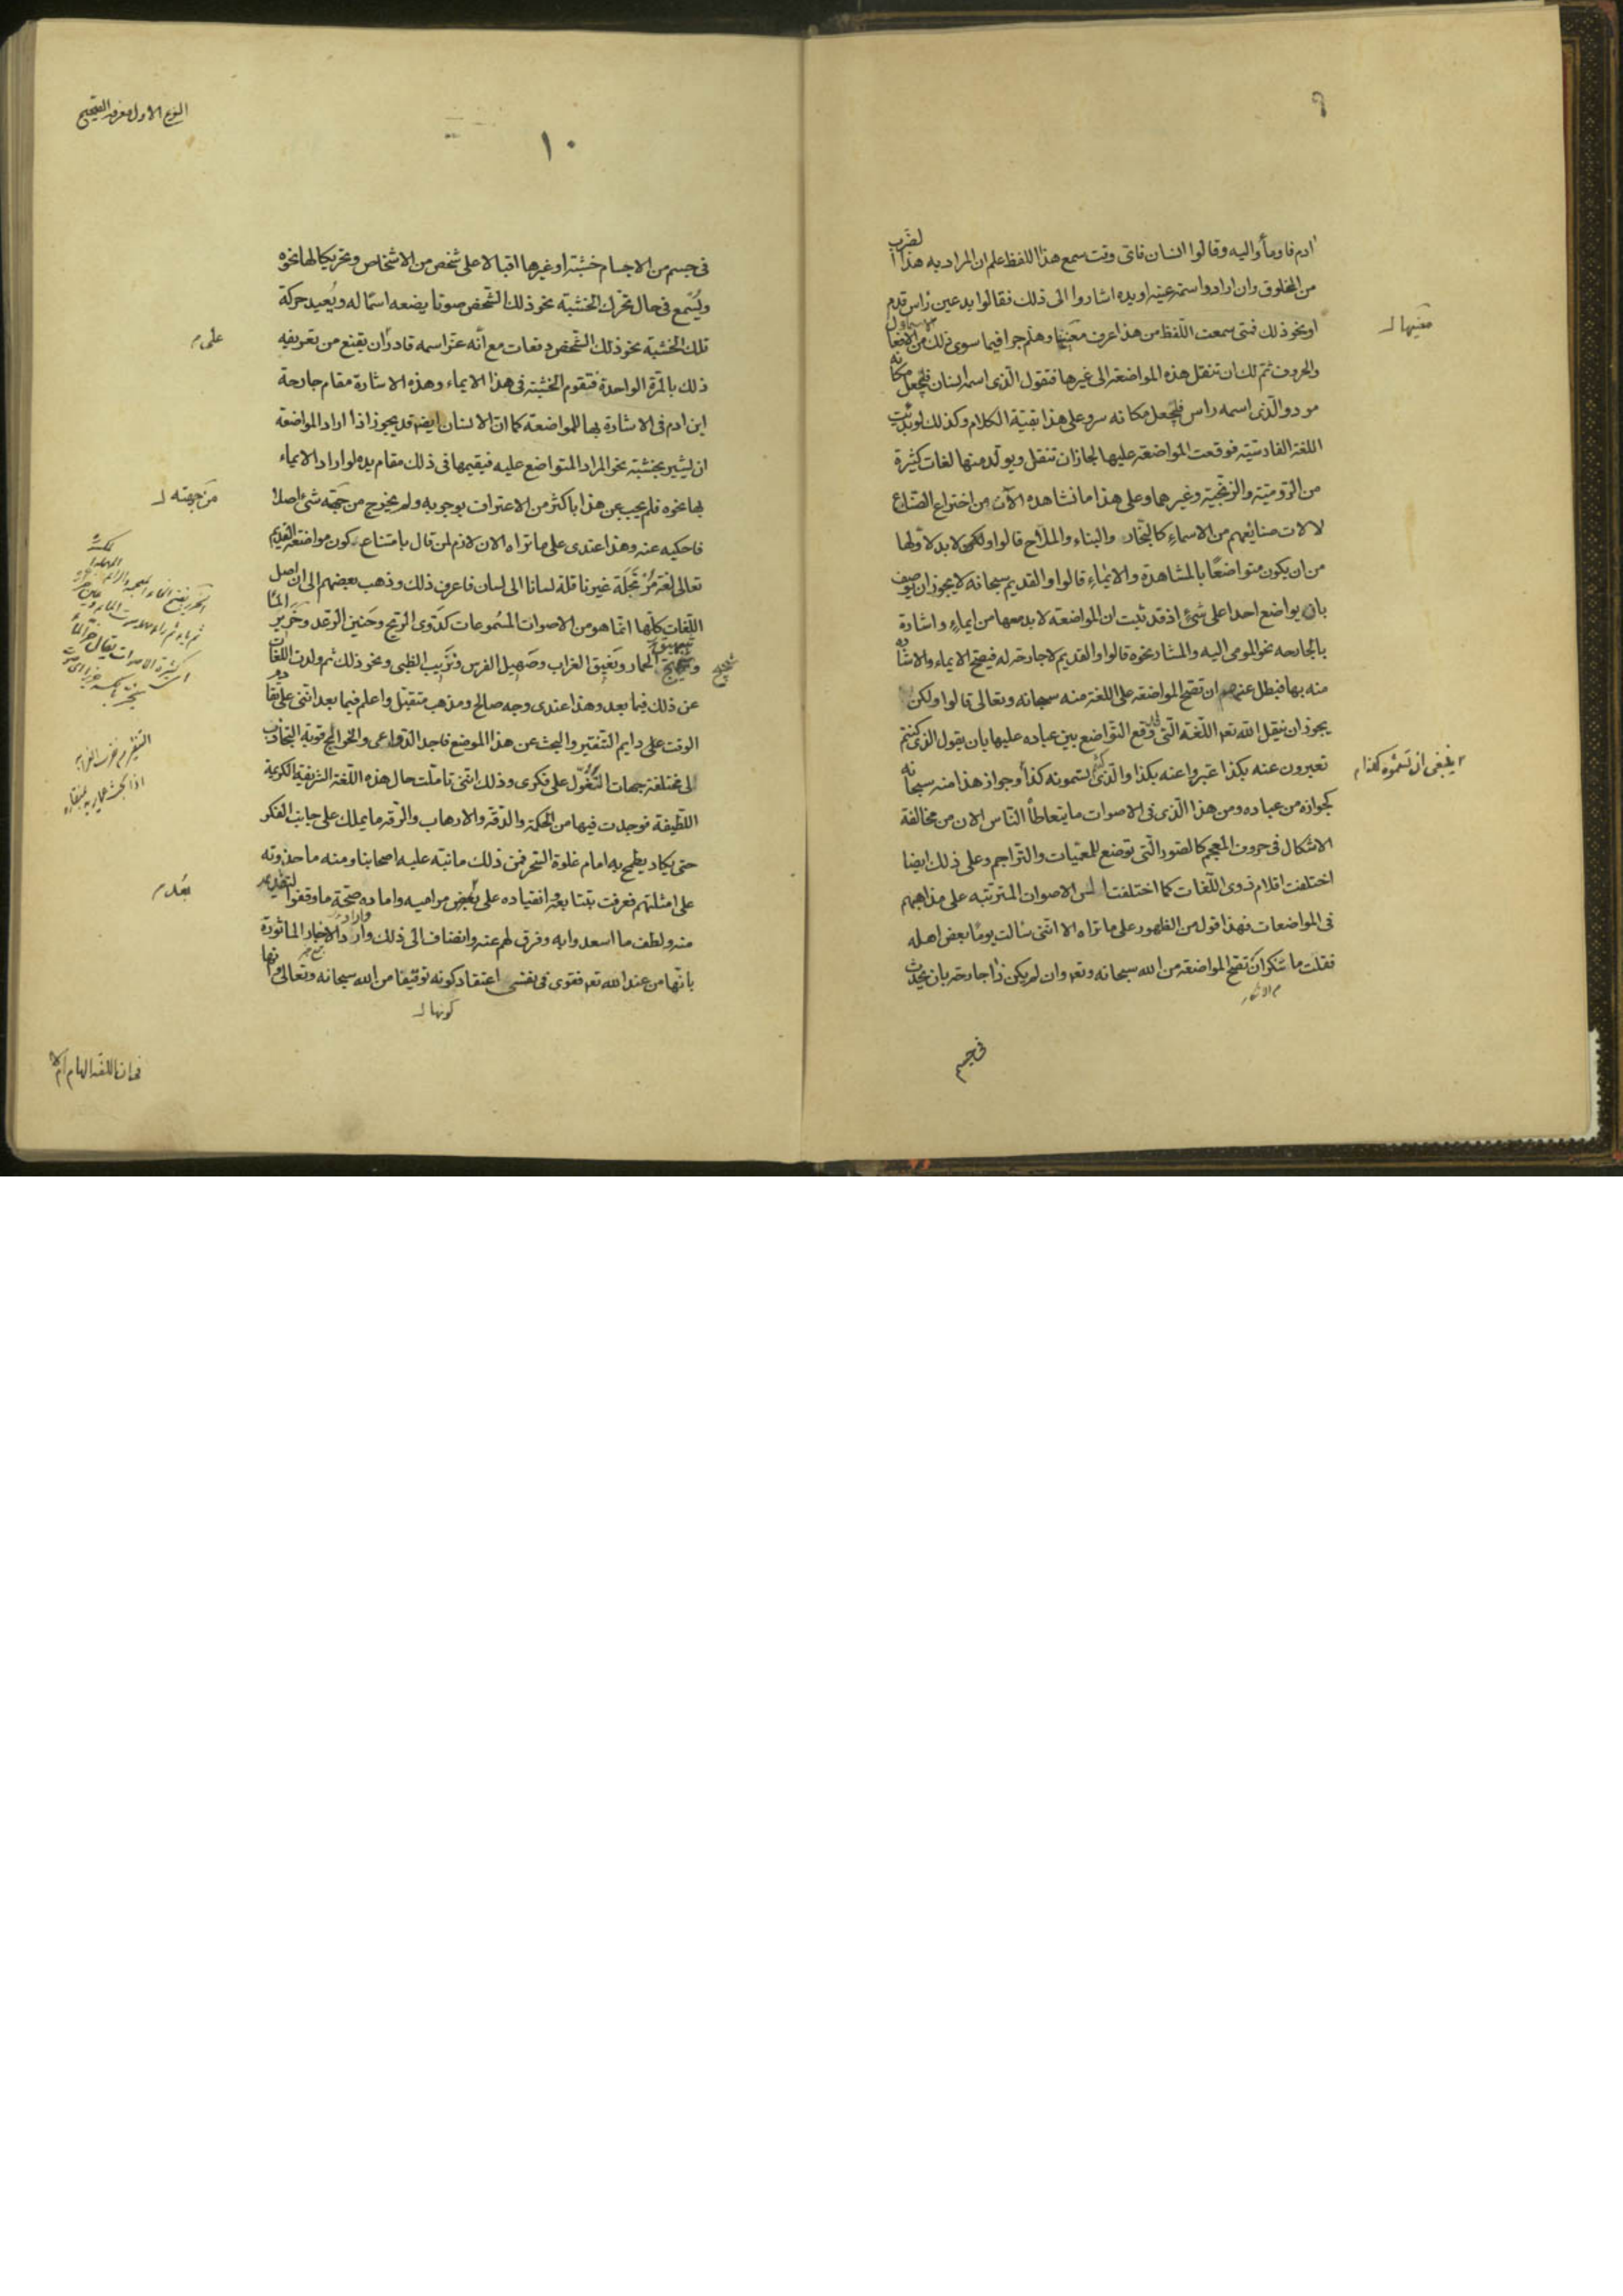 ٩
ادم فاومأوا اليه وقالوا انسان فاى وقت سمع هذا اللفظ علم ان المراد به هذا الضرب
من المخلوق وان ارادوا سمة عينه او يده اشاروا الى ذلك فقالوا يد عين راس قدم
او نحو ذلك فمتى سمعت اللفظ من هذا عرف معنيها وهلم جرا فيما سوى ذلك من الاسماء والافعال
والحروف ثم لك ان تنقل هذه المواضعة الى غيرها فتقول الذى اسمه انسان فليجعل مكانه
مرد والذى اسمه راس فليجعل مكانه سر وعلى هذا بقية الكلام وكذلك لو بدئت
اللغة الفارسية فوقعت المواضعة عليها لجاز ان تنقل ويولد منها لغات كثيرة
من الرومية والزنجية وغيرهما وعلى هذا ما نشاهده الآن من اختراع الصناع
لآلات صنائعهم من الاسماء كالنجار والبناء والملاح قالوا ولكن لا بد لاولها
من ان يكون متواضعًا بالمشاهدة والايماء قالوا والقديم سبحانه لا يجوز ان يوصف
بان يواضع احدا على شئ اذ قد ثبت ان المواضعة لا بد معها من ايماء واشارة
بالجارحه نحو المومى اليه والمشار نحوه قالوا والقديم لا جارحة له فيصح الايماء والاشارة
منه بها فبطل عندهم ان تصح المواضعة على اللغة منه سبحانه وتعالى قالوا ولكن
يجوز ان ينقل الله تعه اللغة التى قد وقع التواضع بين عباده عليها بان يقول الذى كنتم
تعبرون عنه بكذا عبروا عنه بكذا والذى كنتم تسمونه كذا وجواز هذا منه سبحانه
كجوازه من عباده ومن هذا الذى فى الاصوات ما يتعاطاه الناس الان من مخالفة
الاشكال فى حروف المعجم كالصور التى توضع للمعميات والتراجم وعلى ذلك ايضا
اختلفت اقلام ذوى اللغات كما اختلفت السن الاصوات المترتبه على مذاهبهم
فى المواضعات فهذا قول من الظهور على ما تراه الا اننى سالت يومًا بعض اهله
فقلت ما تنكر ان تصح المواضعة من الله سبحانه وتعه وان لم يكن ذا جارحة بان يحدث
معنيها
ينبغى ان تسموه كذا
فى جسم
النوع الاول معرفة الصحيح
١٠
فى جسم من الاجسام خشبة او غيرها اقبالا على شخص من الاشخاص وتحريكا لها نحوه
ويُسمع فى حال تحرك الخشبة نحو ذلك الشخص صوتا يضعه اسما له ويُعيد حركة
تلك الخشبة نحو ذلك الشخص دفعات مع أنه عز اسمه قادر ان يقنع من تعريفه
ذلك بالمرة الواحدة فتقوم الخشبة فى هذا الايماء وهذه الاشارة مقام جارحة
ابن ادم فى الاشارة بها للمواضعة كما ان الانسان ايضه قد يجوز اذا اراد المواضعة
ان يشير بخشبة نحو المراد المتواضع عليه فيقيمها فى ذلك مقام يده لو اراد الايماء
بها نحوه فلم يجب عن هذا باكثر من الاعتراف بوجوبه ولم يخرج من جهته شئ اصلا
فاحكيه عنه وهذا عندى على ما تراه الان لازم لمن قال بامتناع كون مواضعة القديم
تعالى لغة مُرْتَجَلة غير ناقلة لسانا الى لسان فاعرف ذلك وذهب بعضهم الى ان اصل
اللغات كلها انما هو من الاصوات المسموعات كدَوى الريح وحَنين الرعد وخرير الماء
وشحيج الحمار ونَعيق الغراب وصَهيل الفرس ونَزيب الظبى ونحو ذلك ثم ولدت اللغات
عن ذلك فيما بعد وهذا عندى وجه صالح ومذهب متقبل واعلم فيما بعد اننى على تقادم
الوقت على دايم التنقير والبحث عن هذا الموضع فاجد الدواعى والخوالج قوية التجاذب
لى مختلفة جهات التَّغَوّل على فكرى وذلك اننى تاملت حال هذه اللغة الشريفة الكريمة
اللطيفة فوجدت فيها من الحكمة والدقة والارهاف والرقة ما يملك على جانب الفكر
حتى يكاد يطمح به امام غلوة السحر فمن ذلك ما نبه عليه اصحابنا ومنه ما حذوته
على امثلتهم فعرفت بتتابعه وانقياده على بعض مراميه واماده صحة ما وقفوا لتقديمه
منه ولطف ما اسعدوا به وفرق لهم عنه وانضاف الى ذلك وارد الاخبار الماثورة
بانها من عند الله تعه فقوى فى نفسى اعتقاد كونه توقيفا من الله سبحانه وتعالى وانها
كونها
من جهته
شحيج
فى ان اللغة الهام ام لا